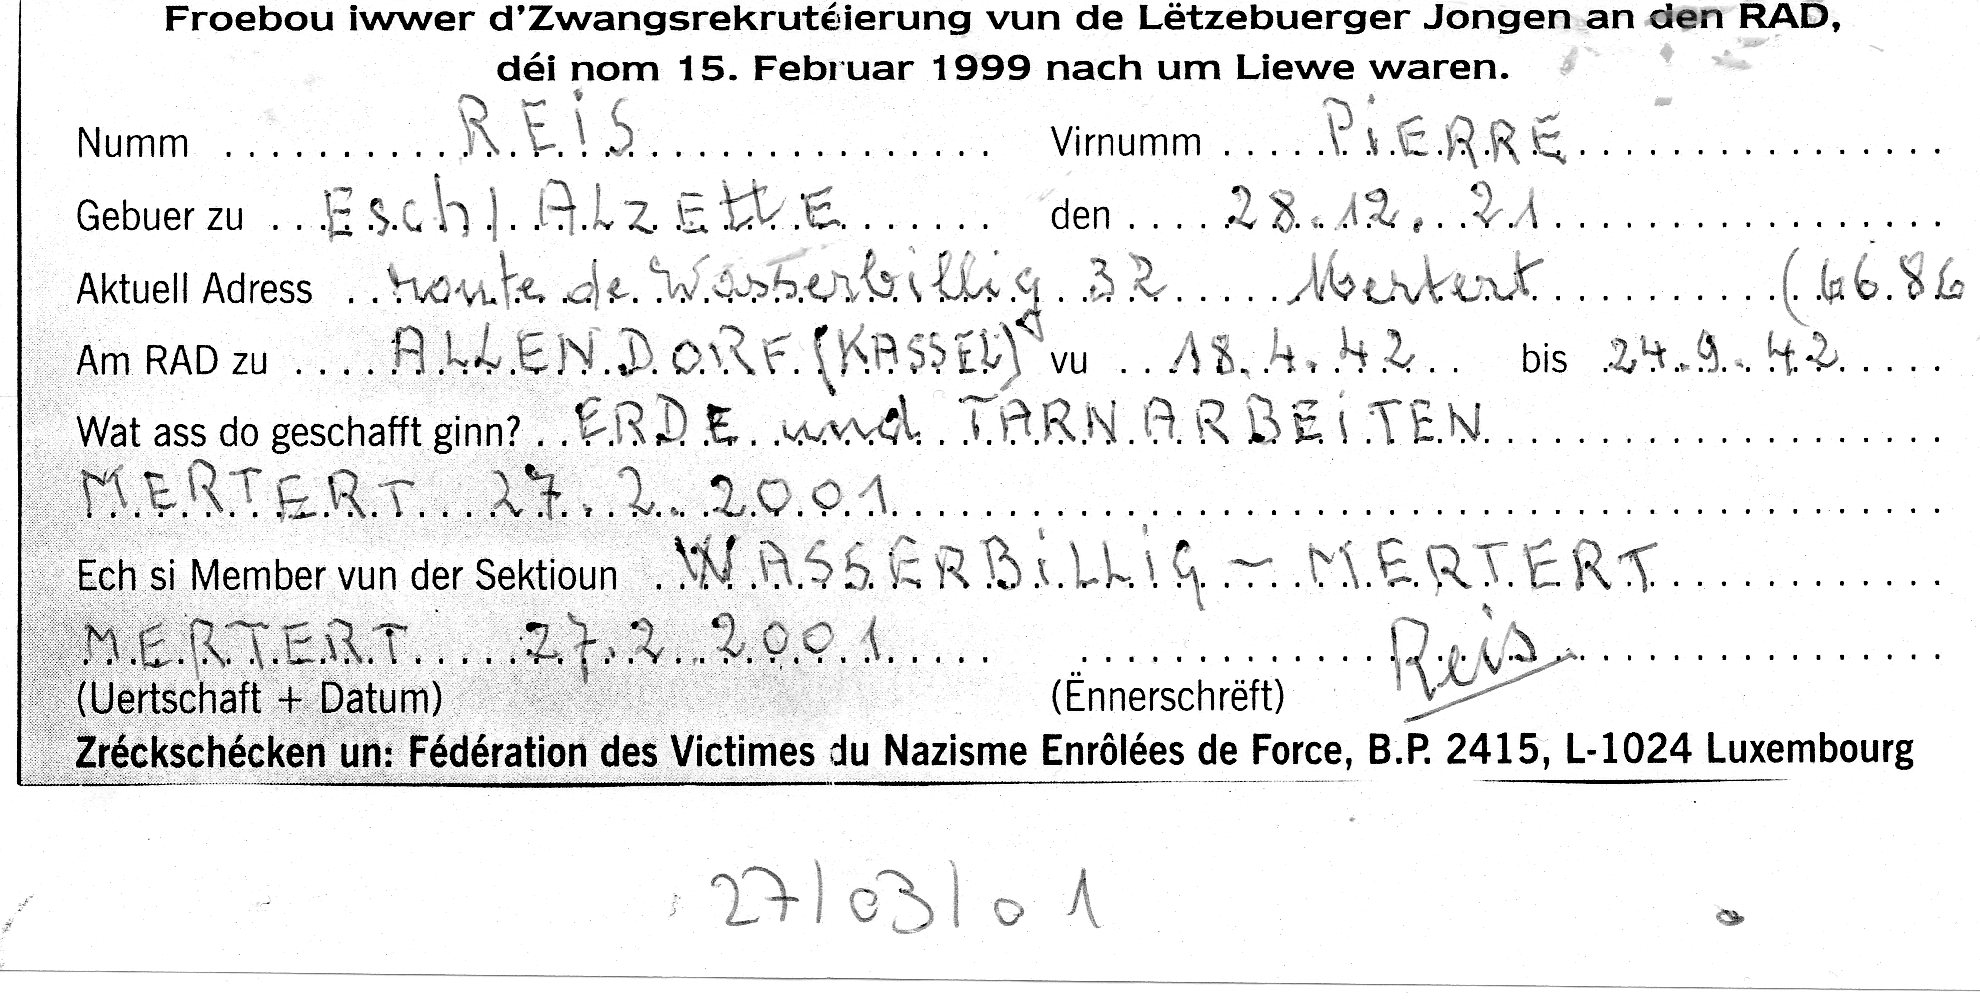 Froebou iwwer d'Zwangsrekrutéierung vun de Lëtzebuerger Jongen an den RAD,
déi nom 15. Februar 1999 nach um Liewe waren.
Numm REiS Virnumm PiERRE
Gebuer zu Esch/AlzEttE den 28.12.21
Aktuell Adress route de Wasserbillig 32 Mertert (6686
Am RAD zu ALLENDORF (KASSEL) vu 18.4.42 bis 24.9.42
Wat ass do geschafft ginn? ERDE und TARNARBEiTEN
MERTERT 27.2.2001
Ech si Member vun der Sektioun WASSERBiLLiG - MERTERT
MERTERT 27.2.2001 Reis
(Uertschaft + Datum) (Ënnerschrëft)
Zréckschécken un: Fédération des Victimes du Nazisme Enrôlées de Force, B.P. 2415, L-1024 Luxembourg
27/03/01